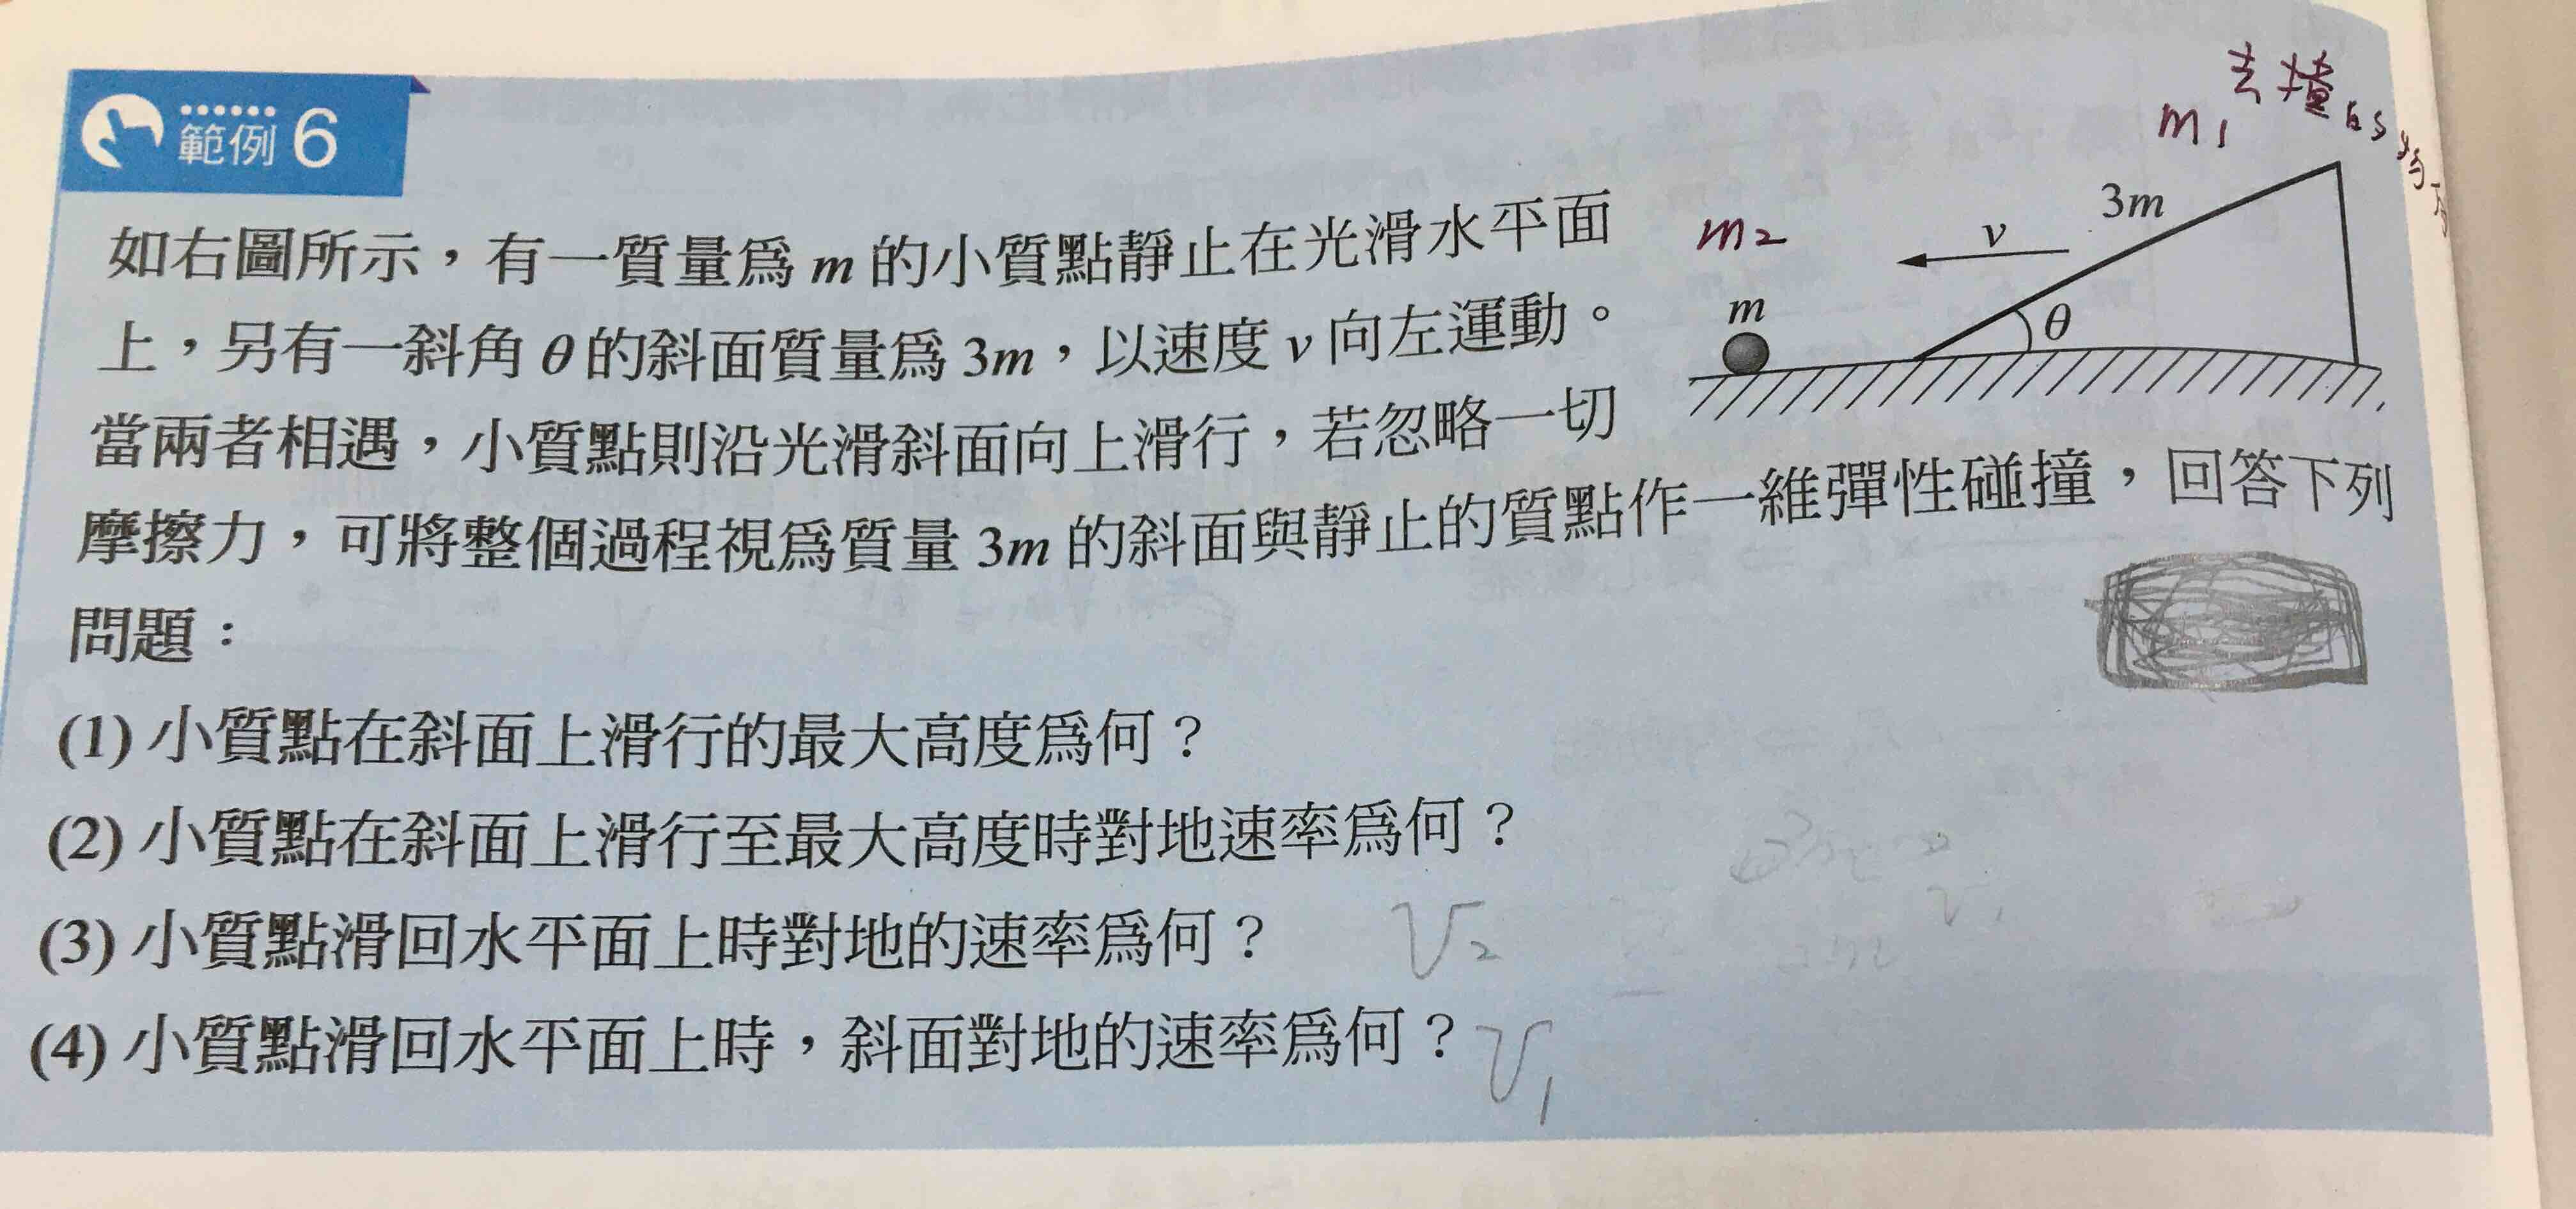 範例 6
m1 去撞的
如右圖所示，有一質量爲 m 的小質點靜止在光滑水平面
m2
v
3m
m
θ
上，另有一斜角 θ 的斜面質量爲 3m，以速度 v 向左運動。
當兩者相遇，小質點則沿光滑斜面向上滑行，若忽略一切
摩擦力，可將整個過程視爲質量 3m 的斜面與靜止的質點作一維彈性碰撞，回答下列
問題：
(1) 小質點在斜面上滑行的最大高度爲何？
(2) 小質點在斜面上滑行至最大高度時對地速率爲何？
(3) 小質點滑回水平面上時對地的速率爲何？ V2
(4) 小質點滑回水平面上時，斜面對地的速率爲何？ V1